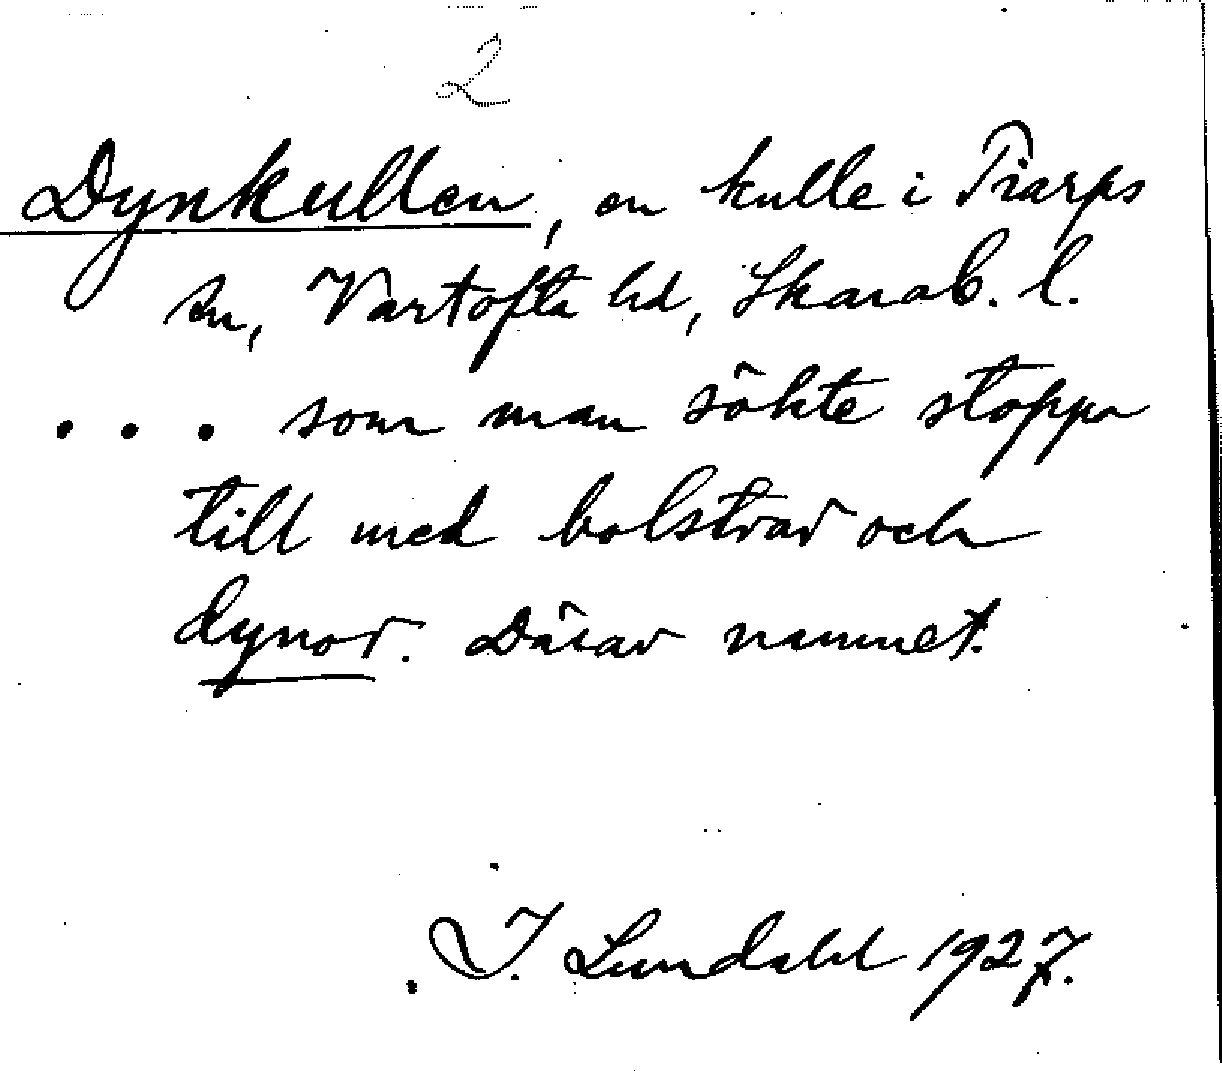 2
Dynkullen, en kulle i Tiarps
sn, Vartofta hd, Skarab. l.
... som man sökte stoppa
till med bolstrar och
dynor. Därav namnet.
I. Lundahl 1927.